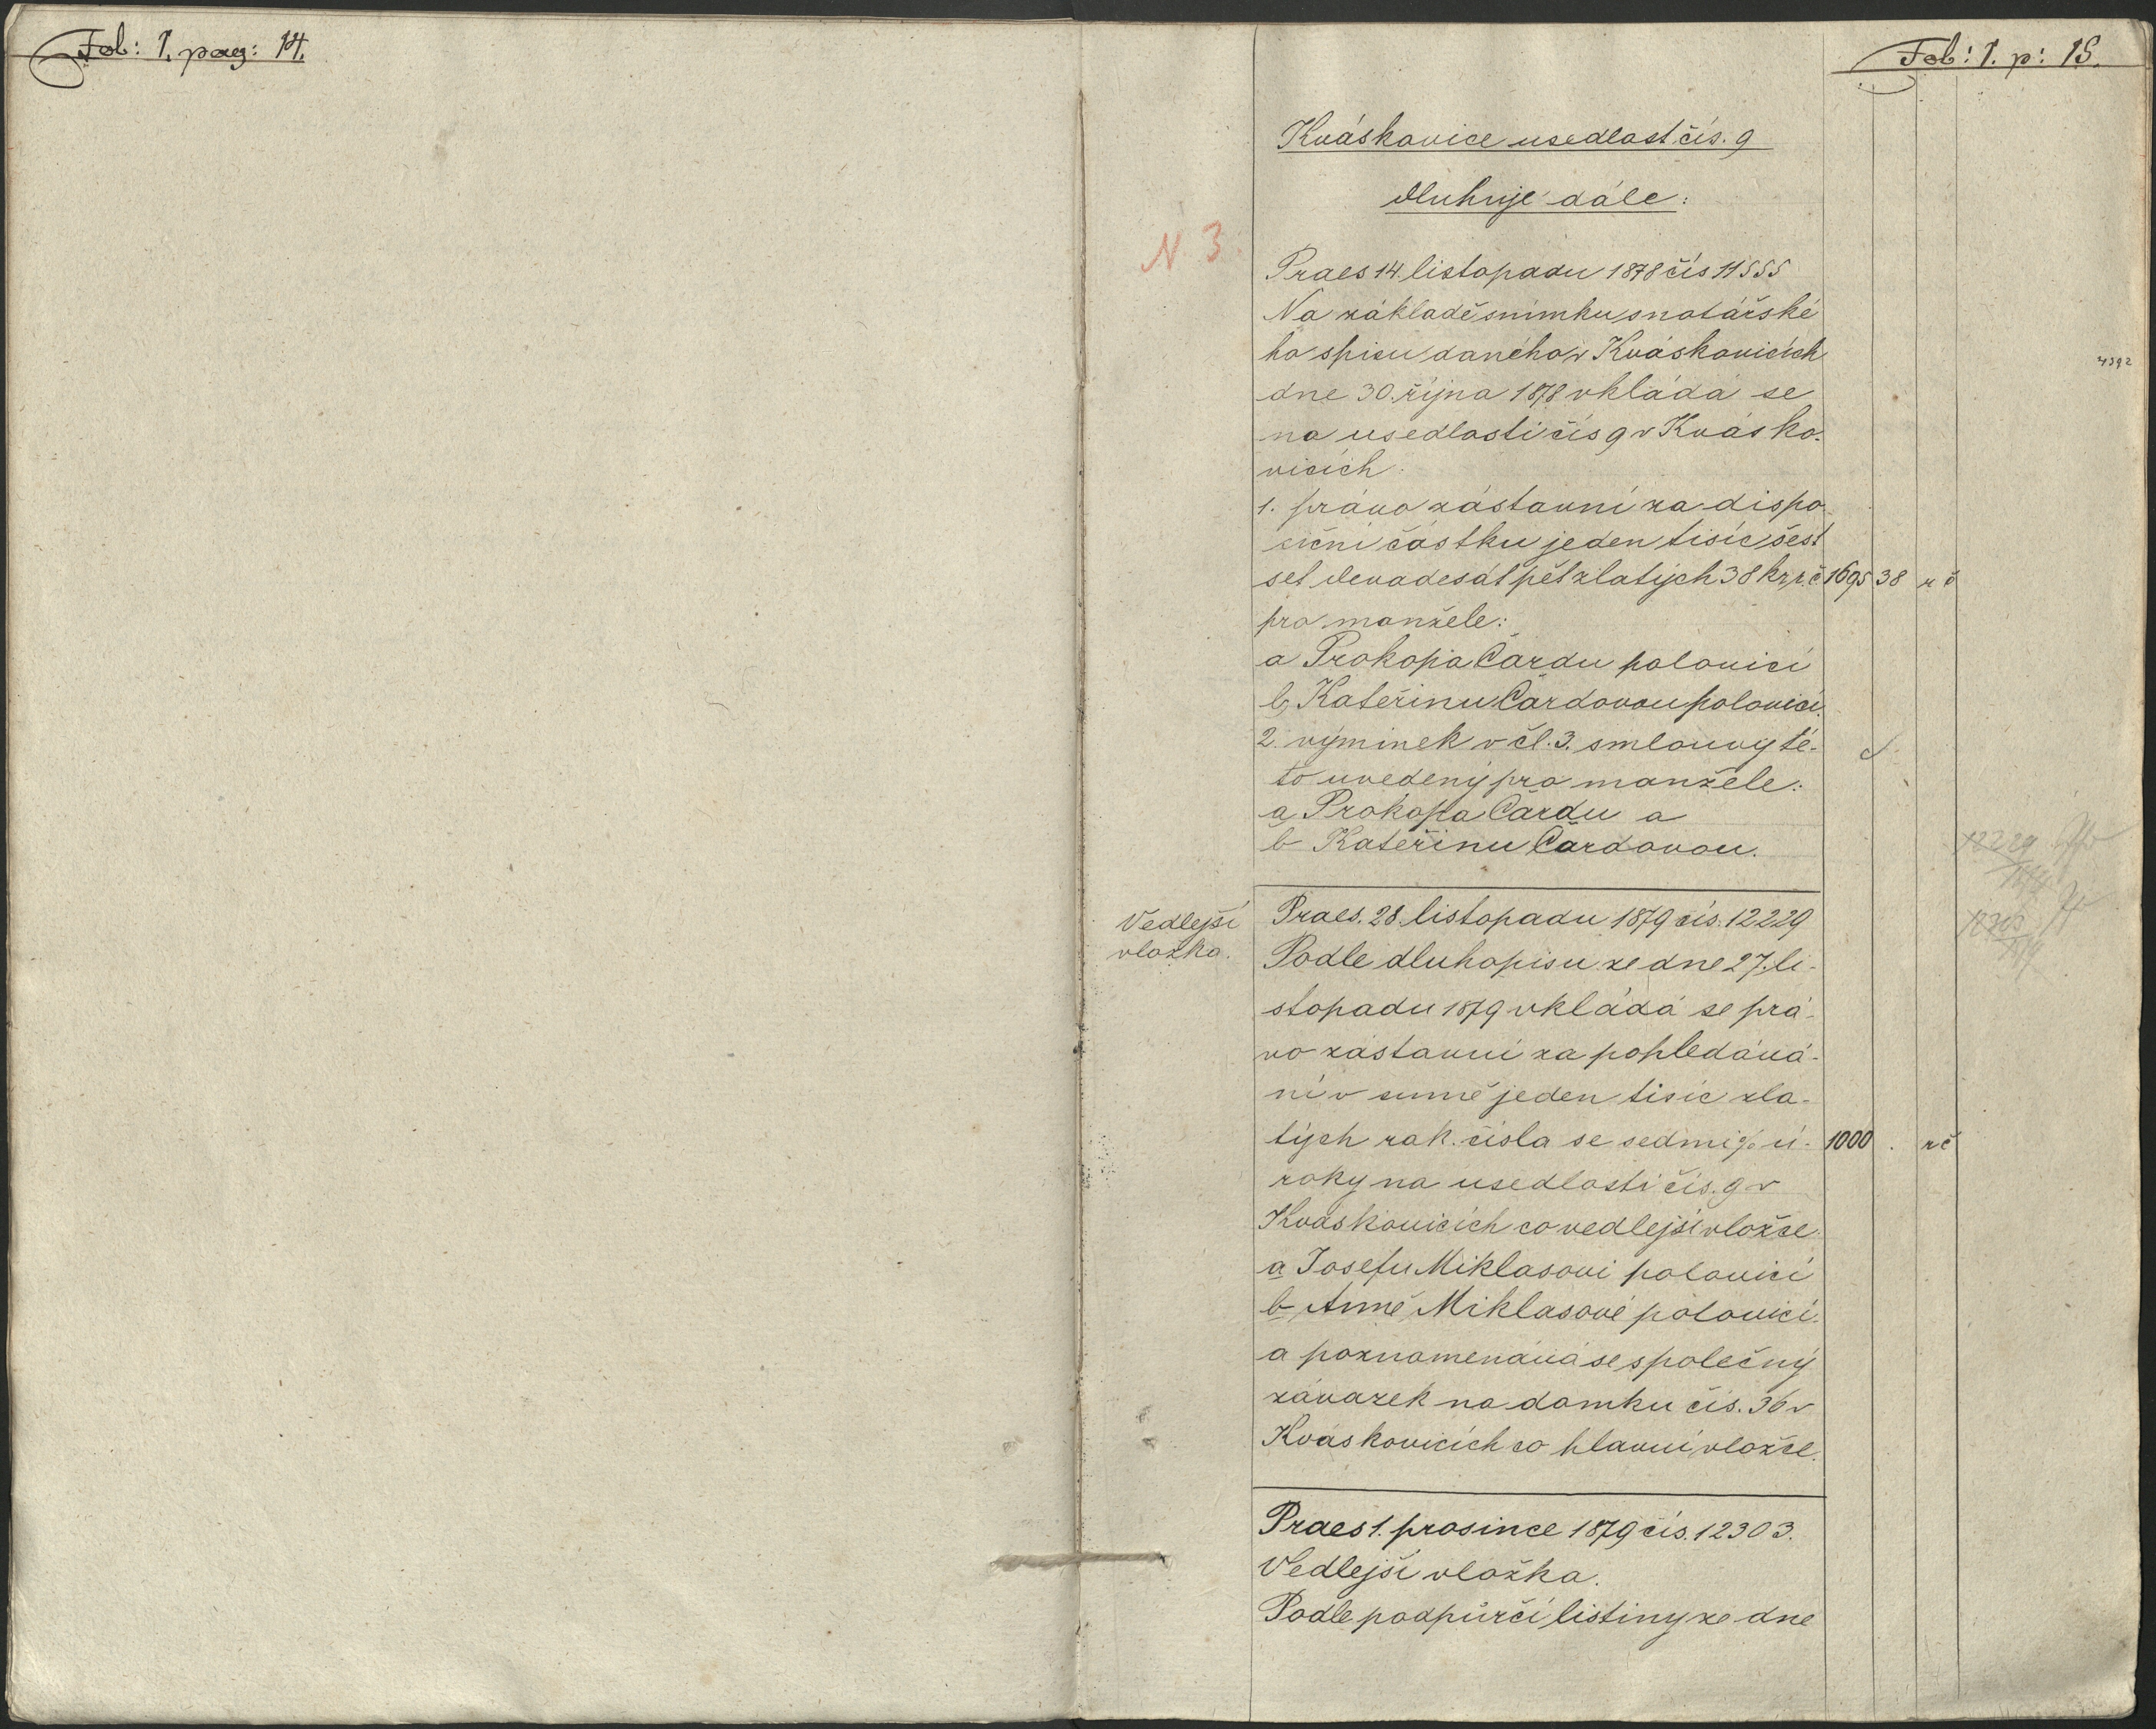 Fol: I. pag: 14.
Fol: I. p: 15.
Kváskovice usedlost čís. 9
dluhuje dále:
N 3.
Praes 14. listopadu 1878 čís 11555
Na základě snímku s notářské
ho spisu daného v Kváskovicích
4392
dne 30. října 1878 vkládá se
na usedlosti čís 9 v Kvásko-
vicích.
1. právo zástavní za dispo-
siční částku jeden tisíc šest
set devadesát pět zlatých 38 kr r. č. 1695 38 r č
pro manžele:
a Prokopa Čardu polovicí
b, Kateřinu Čardovou polovicí.
2. výminek v čl. 3. smlouvy té-
to uvedený pro manžele:
a, Prokopa Čardu a
b Kateřinu Čardovou.
12229
1879
12303
1879
Vedlejší
vložka.
Praes. 28. listopadu 1879 čís. 12229
Podle dluhopisu ze dne 27. li-
stopadu 1879 vkládá se prá-
vo zástavní za pohledává-
ní v sumě jeden tisíc zla-
tých rak. čísla se sedmi % ú- 1000 . r č
roky na usedlosti čís. 9 v
Kváskovicích co vedlejší vložce
a Josefu Miklasovi polovicí
b, Anně Miklasové polovicí.
a poznamenává se společný
závazek na domku čís. 36 v
Kváskovicích co hlavní vložce.
Praes 1. prosince 1879 čís. 12303.
Vedlejší vložka.
Podle podpůrčí listiny ze dne